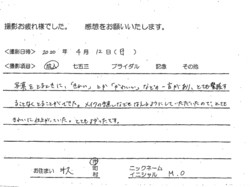 撮影お疲れ様でした。 感想をお願いいたします。
<撮影日時> 2020 年 4 月 12 日(月)
<撮影項目> 成人 七五三 ブライダル 記念 その他
写真をとるときに、「きれい」とか「かわいい」などの一言があり、とても緊張す
ることなくとることができた。メイクの手直しなども
きれいに仕上がっていた。とてもよかったです。
お住まい 町 村 ニックネーム
イニシャル M.O